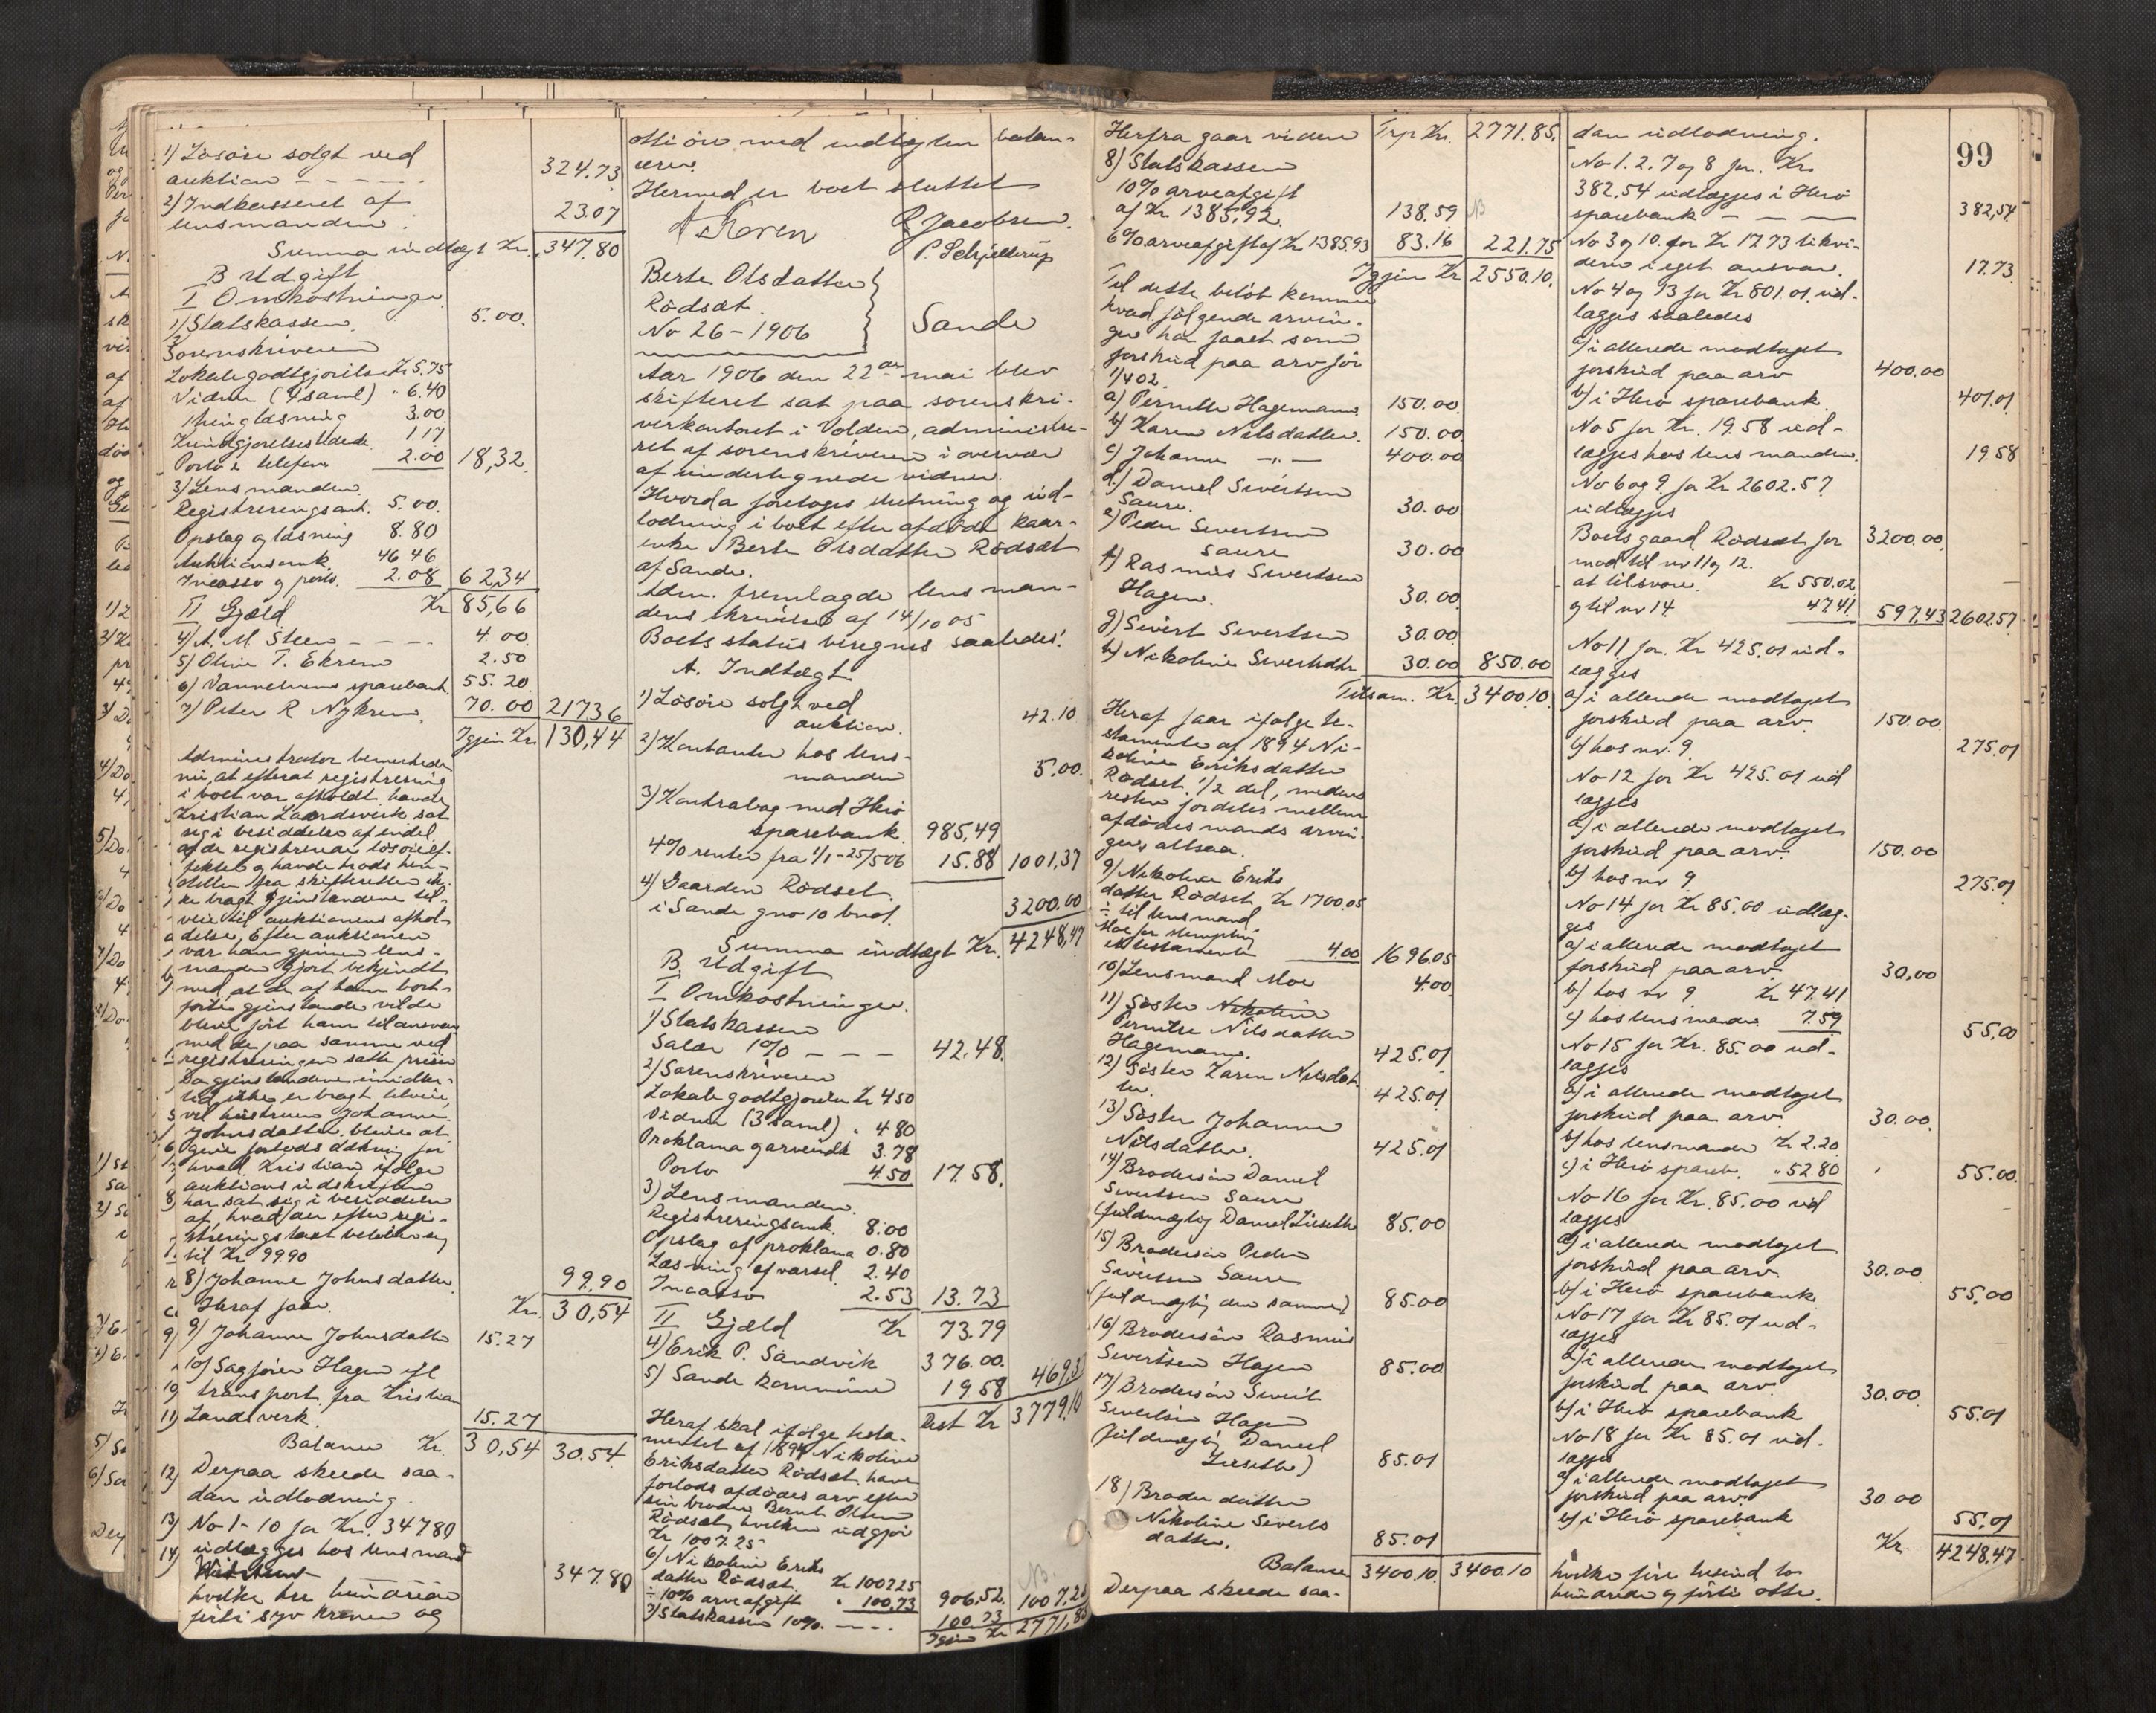 1) Løsøre solgt ved
auktion - - - - - 324.73
2) Indkasseret af
lensmanden. 23.07
Summa indtægt Kr. 347.80
B Udgift
I Omkostninger
1) Statskassen. 5.00.
2) Sorenskriveren
Lokalegodtgjørelse Kr 5.75
Vidner (4 saml) " 6.40
Thinglæsning 3.00
Kundgjørelses 1.17
Porto & telefon 2.00 18,32.
3) Lensmanden.
Registreringsomk. 5.00.
Opslag og læsning 8.80
Auktionsomk. 46 46
Incasso og porto. 2.08 62,34
II Gjæld Kr 85,66
4) A. M. Steen - - - - 4.00.
5) Oline T. Ekrem 2.50
6) Vannelvens sparebank. 55.20.
7) Peter R Nykrem. 70.00 217,36
Igjen Kr. 130,44
Administrator bemerkede
nu, at efterat registrering
i boet var afholdt, havde
Kristian Landsverk sat
seg i besiddelse af endel
af de registrerede løsøreef-
fekter og havde trods hen-
stillen fra skifteretten ik-
ke bragt gjenstandene til-
veie til auktionens afhol-
delse. Efter auktionen
var han gjennem lens-
manden gjort bekjendt
med, at de af ham bort-
førte gjenstande vilde
blive ført ham til ansvar
med de paa samme ved
registreringen satte priser
Da gjenstandene imidler-
tid ikke er bragt tilveie,
vil hustruen Johanne
Johnsdatter blive at
give forlods dækning for
hvad Kristian ifølge
auktions udskriften
har sat sig i besiddelse
af, hvad der efter regi-
streringstaxt beløber sig
til Kr 99.90
8) Johanne Johnsdatter. 99.90
Heraf faar. Kr. 30,54
9) Johanne Johnsdatter 15.27
10) Sagfører Hagen efl
transport fra Kristian
Landsverk. 15.27
Balance Kr. 30,54 30.54.
Derpaa skeede saa-
dan udlodning.
No 1-10 for Kr. 347 80
udlægges hos lensmand
347.80
hvilke tre hundrede
førti syv kroner og
otti øre med indtægten balan-
cerer.
Hermed er boet sluttet
Koren R Jacobsen.
P. Schjelderup
Berte Olsdatter
Rødsæt.
No 26 - 1906
Sande
Aar 1906 den 22de mai blev
skifteret sat paa sorenskri-
verkontoret i Volden, administre-
ret af sorenskriveren i overvær
af undertegnede vidner.
Hvorda foretoges slutning og ud-
lodning i boet efter afdøde kaar-
enke Berte Olsdatter Rødsæt
af Sande.
Adm. fremlagde lensman-
dens skrivelse af 14/10 05
Boets status beregnes saaledes:
A. Indtægt.
1) Løsøre solgt ved
auktion. 42.10
2) Kontanter hos lens-
manden 5.00.
3) Kontrabog med Herø
sparebank. 985,49
4% renter fra 1/1 - 25/5 06 15.88 1001,37
4) Gaarden Rødset.
i Sande gno 10 bno1. 3200.00
Summa indtægt Kr. 4248,47
B. Udgift
I Omkostninger.
1) Statskassen
Salær 1% - - - 42.48.
2) Sorenskriveren
Lokalegodtgjørelse Kr 4 50
Vidner (3 saml) " 4 80
Proklama og arveindk 3.78
Porto 4.50 17.58.
3) Lensmanden.
Registreringsomk. 8.00
Opslag af proklama 0.80
Læsning af varsel. 2.40
Incasso 2.53 13.73
II Gjæld Kr 73.79
4) Erik P. Sandvik 376.00.
5) Sande kommune 19.58 469,37
Rest Kr 3779,10
Heraf skal ifølge testa-
mentet af 1894 Nikoline
Eriksdatter Rødsæt have
forlods afdødes arv efter
sin broder Bernt Olsen
Rødsæt, hvilken udgjør
Kr 1007.25
6) Nikoline Eriks
datter Rødsæt. Kr 1007.25
÷ 10% arveafgift " 100,73 906,52.
7) Statskassen 10%. - - - . 100 73 1007.25
Igjen Kr 2771,85
Herfra gaar videre Trp Kr. 2771.85.
8) Statskassen
10% arveafgift
af Kr 1385,92. 138.59
6% arveafgift af Kr 1385.93 83.16 221.75
Igjen Kr 2550.10.
Til dette beløb kommer
hvad følgende arvin-
ger har faaet som
forskud paa arv før
1/4 02.
a) Pernille Hagemann 150.00.
b) Karen Nilsdatter. 150.00
c) Johanne -"- 400.00
d.) Daniel Sivertsen
Saure. 30.00
e) Peder Sivertsen
Saure 30.00
f) Rasmus Sivertsen
Hagen. 30.00
g) Sivert Sivertsen 30.00
h) Nikoline Sivertsdtr 30.00 850.00
Tilsam. Kr. 3400.10.
Heraf faar ifølge te-
stamente af 1894 Ni-
koline Eriksdatter
Rødset. 1/2 del, medens
resten fordeles mellem
afdødes mands arvin-
ger, altsaa.
9) Nikoline Eriks
datter Rødset Kr 1700.05
÷ til lensmand
Moe for stempling
af testamente 4.00 1696.05
10) Lensmand Moe 4.00.
11) Søster Nikoline
Pernille Nilsdatter
Hagemann. 425.01
12) Søster Karen Nilsdat-
ter. 425.01
13) Søster Johanne
Nilsdatter. 425.01
14) Brodersøn Daniel
Sivertsen Saure
(fuldmægtig Daniel Liseth) 85.00
15) Brodersøn Peder
Sivertsen Saure
(fuldmægtig den samme) 85.00
16) Brodersøn Rasmus
Sivertsen Hagen 85.00
17) Brodersøn Sivert
Sivertsen Hagen
(fuldmægtig Daniel
Liseth) 85.01
18) Broder datter
Nikoline Siverts
datter. 85.01
Balance 3400.10. 3400.10
Derpaa skeede saa-
99
dan udlodning.
No 1. 2. 7 og 8 for Kr.
382.54 udlægges i Herø
sparebank - - - 382,54
No 3 og 10. for Kr 17.73 likvi-
deres i eget ansvar. 17.73
No 4 og 13 for Kr 801 01 ud-
lægges saaledes
a) i allerede modtaget
forskud paa arv 400.00
b) i Herø sparebank. 401.01
No 5 for Kr. 19.58 ud-
lægges hos lensmanden. 19.58
No 6 og 9 for Kr 2602.57
udlægges
Boets gaard Rødsæt for 3200.00
mod til nr 11 og 12.
at tilsvare. Kr 550.02
og til nr 14. 47.41 597,43 2602.57
No 11 for Kr 425.01 ud-
lægges
a) i allerede modtaget
forskud paa arv. 150.00
b) hos nr. 9. 275.01
No 12 for Kr 425.01 ud
lægges
a) i allerede modtaget
forskud paa arv. 150.00
b) hos nr 9 275.01
No 14 for Kr 85.00 udlæg-
ges
a) i allerede modtaget
forskud paa arv. 30,00
b) hos nr 9 Kr 47.41
c) hos lensmanden 7.59 55,00
No 15 for Kr. 85.00 ud-
lægges
a) i allerede modtaget
forskud paa arv. 30.00.
b) hos lensmanden Kr 2.20
c) i Herø spareb. " 52.80 55.00.
No 16 for Kr. 85.00 ud
lægges
a) i allerede modtaget
forskud paa arv. 30.00
b) i Herø sparebank 55.00
No 17 for Kr 85.01 ud-
lægges
a) i allerede modtaget
forskud paa arv. 30.00.
b) i Herø sparebank 55.01
No 18 for Kr 85.01 ud-
lægges
a) i allerede modtaget
forskud paa arv. 30.00
b) i Herø sparebank 55,01
Kr 4248,47
hvilke fire tusind to
hundrede og førti otte.